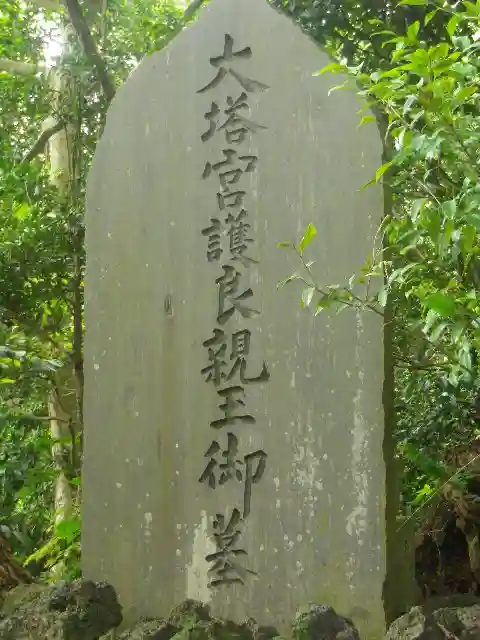 大塔宮護良親王御墓